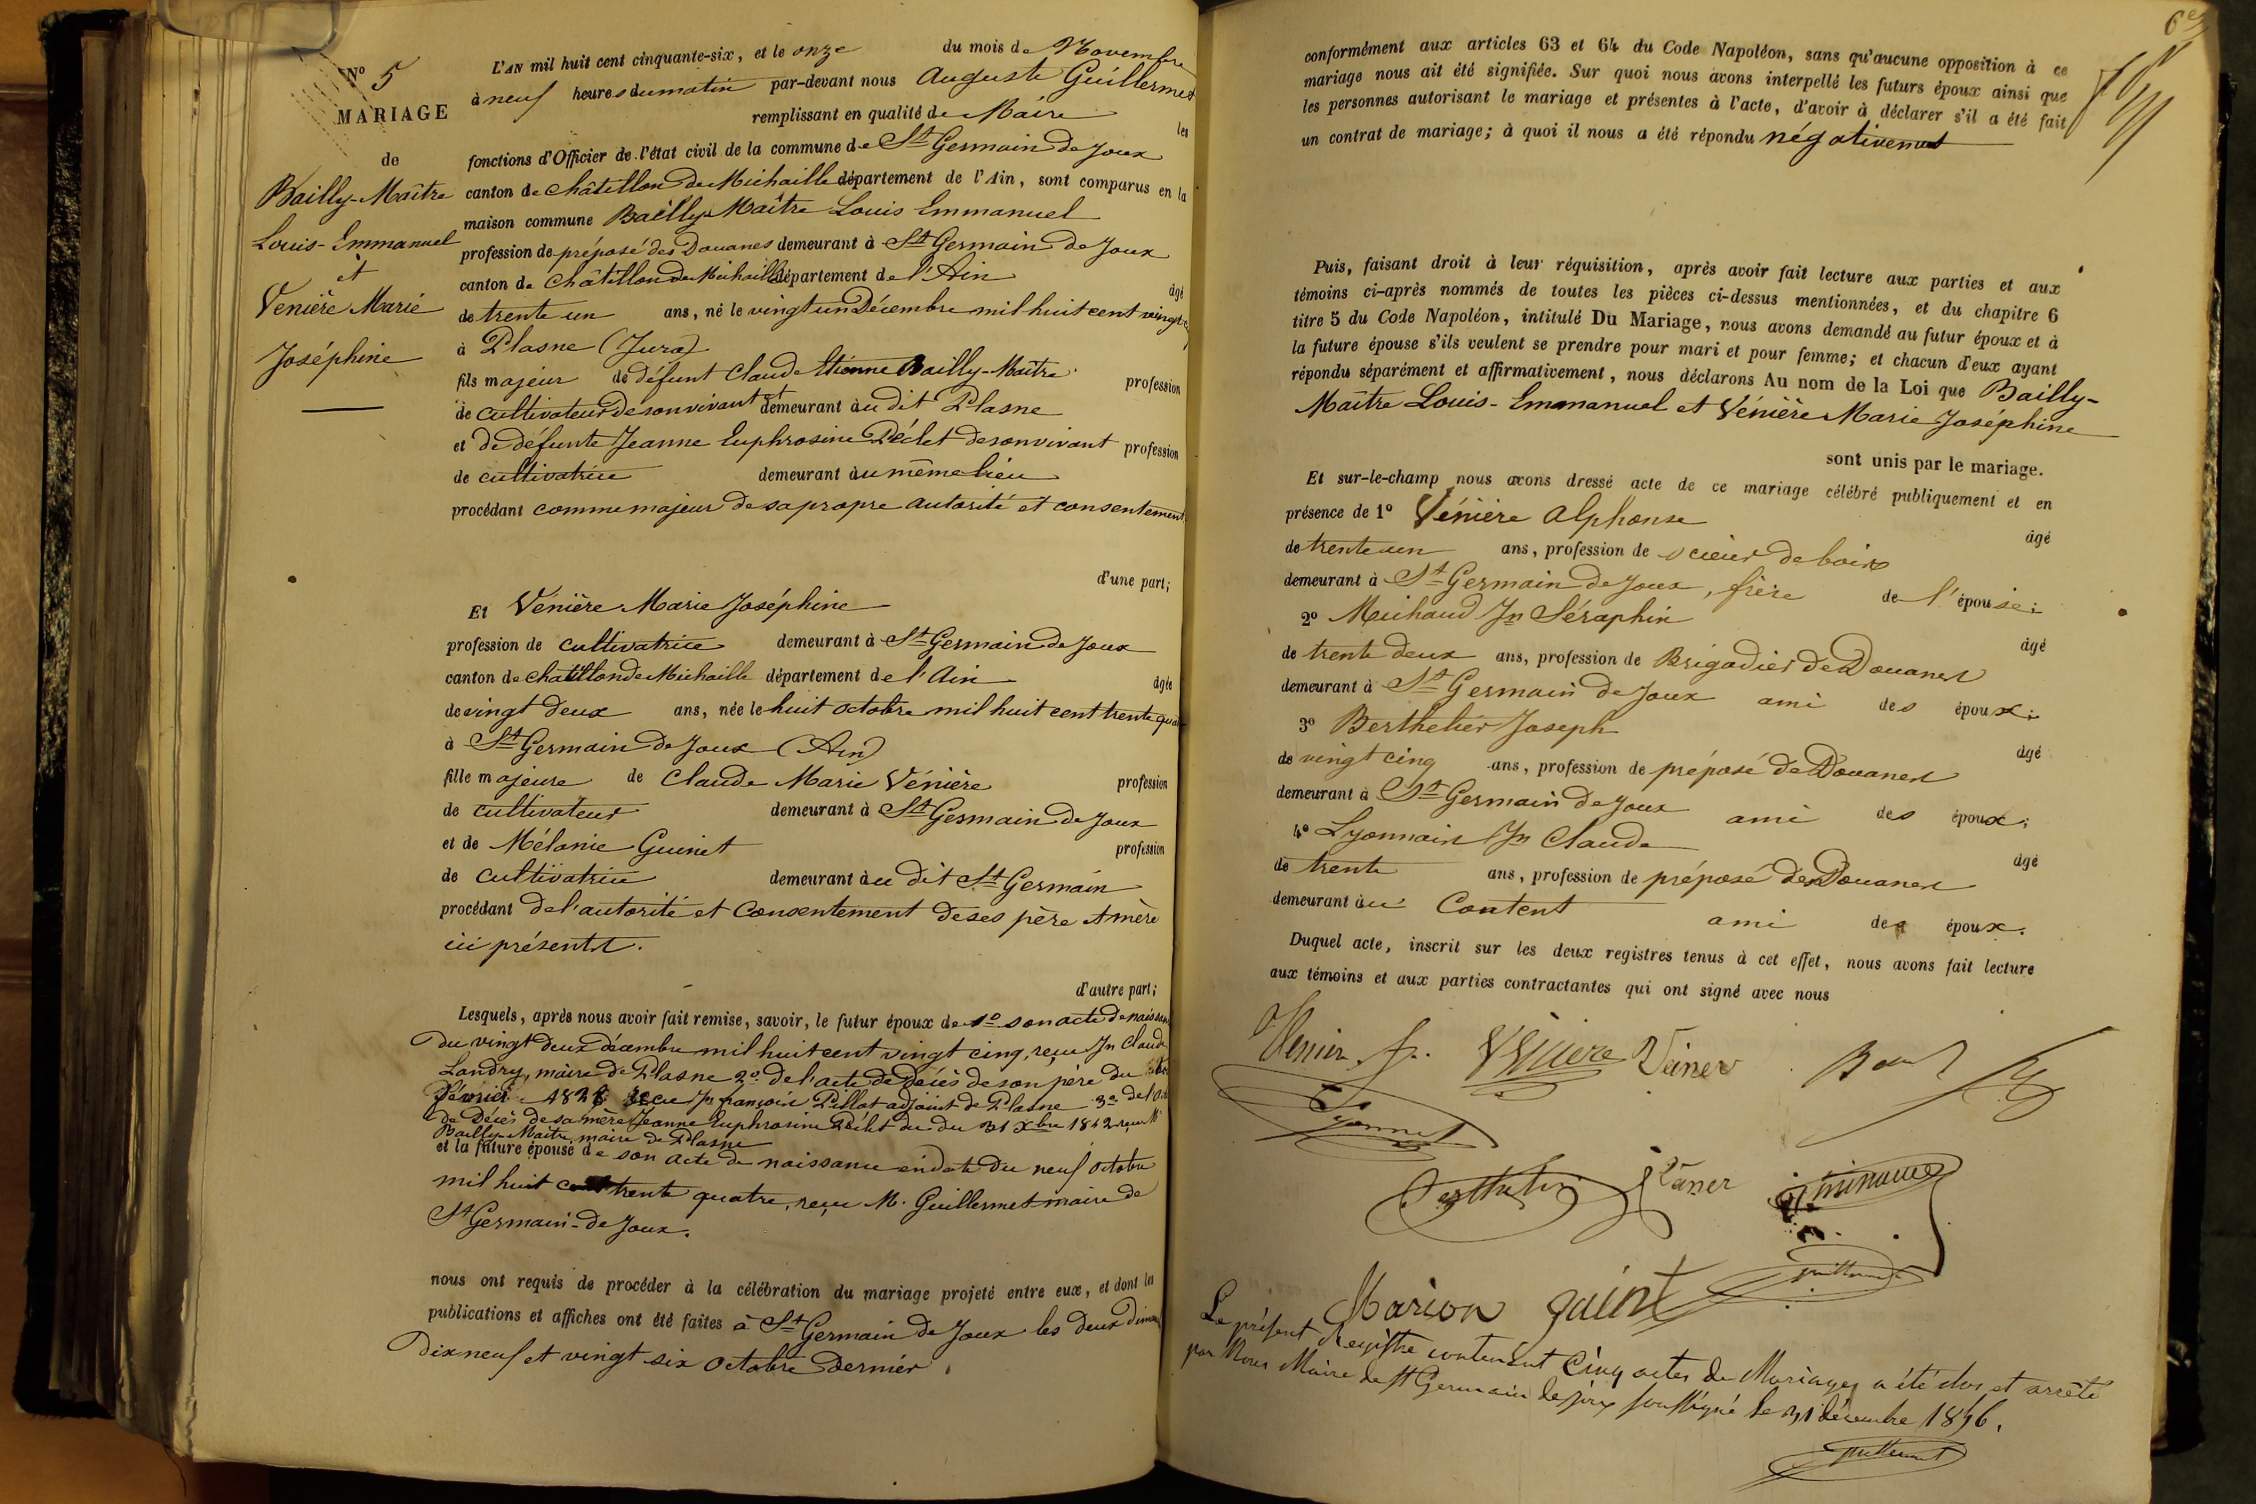 N° 5
MARIAGE
de
Bailly-Maître
Louis-Emmanuel
et
Venière Marie
Joséphine
L'AN mil huit cent cinquante-six, et le onze du mois de Novembre
à neuf heures du matin par-devant nous Auguste Guillermet
remplissant en qualité de Maire les
fonctions d'Officier de l'état civil de la commune de St Germain de Joux
canton de Châtillon de Michaille département de l'Ain, sont comparus en la
maison commune Bailly-Maître Louis Emmanuel
profession de préposé des Douanes demeurant à St Germain de Joux
canton de Châtillon de Michaille département de l'Ain âgé
de trente un ans, né le vingt un Décembre mil huit cent vingt
à Plasne (Jura)
fils majeur de défunt Claude Etienne Bailly-Maître profession
de cultivateur de son vivant et demeurant au dit Plasne
et de défunte Jeanne Euphrosine Péclet de son vivant profession
de cultivatrice demeurant au même lieu
procédant comme majeur de sa propre autorité et consentement
d'une part;
Et Vénière Marie Joséphine
profession de cultivatrice demeurant à St Germain de Joux
canton de Chatillon de Michaille département de l'Ain âgée
de vingt deux ans, née le huit octobre mil huit cent trente qua
à St Germain de Joux (Ain)
fille majeure de Claude Marie Vénière profession
de cultivateur demeurant à St Germain de Joux
et de Mélanie Guinet profession
de cultivatrice demeurant au dit St Germain
procédant de l'autorité et consentement de ses père et mère
ici présents.
d'autre part;
Lesquels, après nous avoir fait remise, savoir, le futur époux de 1° son acte de naissan
du vingt deux décembre mil huit cent vingt cinq, reçu Jn Claude
Landry, maire de Plasne 2° de l'acte de décès de son père du
Février reçu Jn François Pillot adjoint de Plasne 3° de l'
de Décès de sa mère Jeanne Euphrosine Péclet du 31 Xbre 1842 reçu Mr
Bailly-Maître maire de Plasne
et la future épouse de son acte de naissance en date du neuf octobre
mil huit cent trente quatre, reçu M. Guillermet maire de
St Germain-de Joux.
nous ont requis de procéder à la célébration du mariage projeté entre eux, et dont les
publications et affiches ont été faites à St Germain de Joux les deux diman
Dix neuf et vingt six octobre Dernier.
6e
conformément aux articles 63 et 64 du Code Napoléon, sans qu'aucune opposition à ce
mariage nous ait été signifiée. Sur quoi nous avons interpellé les futurs époux ainsi que
les personnes autorisant le mariage et présentes à l'acte, d'avoir à déclarer s'il a été fait
un contrat de mariage; à quoi il nous a été répondu négativement
Puis, faisant droit à leur réquisition, après avoir fait lecture aux parties et aux
témoins ci-après nommés de toutes les pièces ci-dessus mentionnées, et du chapitre 6
titre 5 du Code Napoléon, intitulé Du Mariage, nous avons demandé au futur époux et à
la future épouse s'ils veulent se prendre pour mari et pour femme; et chacun d'eux ayant
répondu séparément et affirmativement, nous déclarons Au nom de la Loi que Bailly-
Maître Louis-Emmanuel et Vénière Marie Joséphine
sont unis par le mariage.
Et sur-le-champ nous avons dressé acte de ce mariage célébré publiquement et en
présence de 1° Vénière Alphonse âgé
de trente un ans, profession de scieur de bois
demeurant à St Germain de Joux, frère de l'épouse;
2° Michaud Jn Séraphin âgé
de trente deux ans, profession de Brigadier de Douanes
demeurant à St Germain de Joux ami des époux;
3° Berthelier Joseph âgé
de vingt cinq ans, profession de préposé de Douanes
demeurant à St Germain de Joux ami des époux;
4° Lyonnais Jn Claude âgé
de trente ans, profession de préposé des Douanes
demeurant au Content ami des époux.
Duquel acte, inscrit sur les deux registres tenus à cet effet, nous avons fait lecture
aux témoins et aux parties contractantes qui ont signé avec nous
Vénière
Marion
Le présent Registre contenant Cinq actes de Mariages a été clos et arrêté
par Nous Maire de St Germain de joux soussigné le 31 décembre 1856.